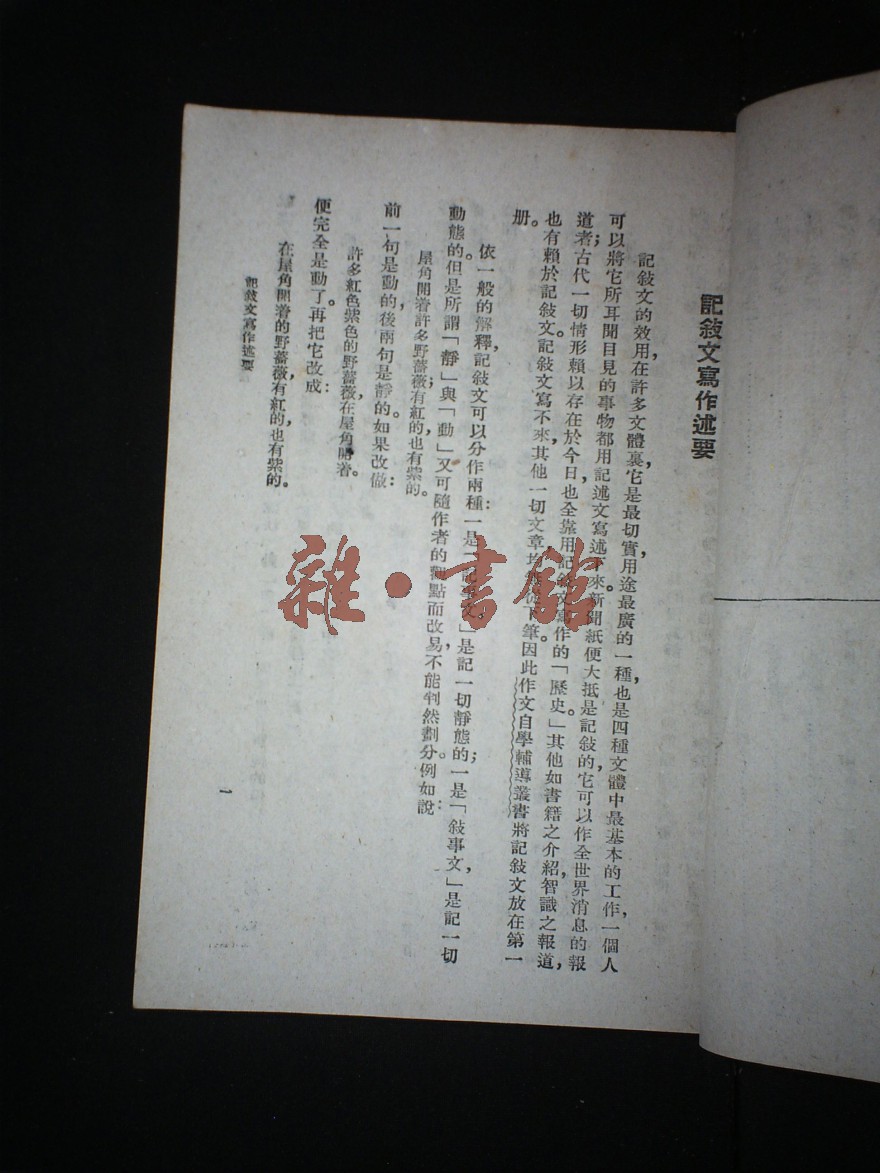 記敍文寫作述要
記敍文的效用，在許多文體裏，它是最切實用途最廣的一種，也是四種文體中最基本的工作，一個人
可以將它所耳聞目見的事物都用記述文寫述下來。新聞紙便大抵是記敍的，它可以作全世界消息的報
道者；古代一切情形賴以存在於今日，也全靠用記敍文寫作的「歷史」。其他如書籍之介紹，智識之報道，
也有賴於記敍文。記敍文寫不來，其他一切文章均下筆。因此作文自學輔導叢書將記敍文放在第一
册。
依一般的解釋，記敍文可以分作兩種：一是「記事文」，是記一切靜態的；一是「敍事文」，是記一切
動態的。但是所謂「靜」與「動」，又可隨作者的觀點而改易，不能判然劃分。例如說：
屋角開着許多野薔薇；有紅的，也有紫的。
前一句是動的，後兩句是靜的。如果改做：
許多紅色紫色的野薔薇，在屋角開着。
便完全是動了。再把它改成：
在屋角開着的野薔薇，有紅的，也有紫的。
記敍文寫作述要
一
雜·書館